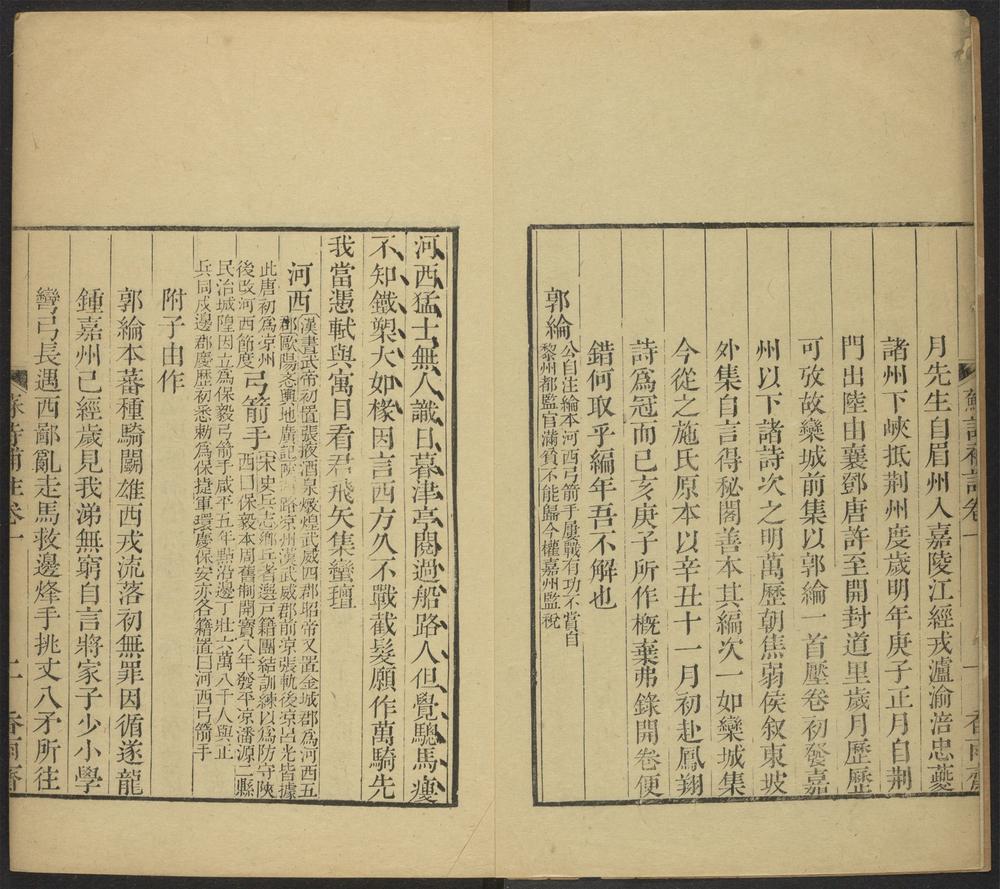 月先生自眉州入嘉陵江經戎瀘渝涪忠夔
諸州下峽抵荆州度歲明年庚子正月自荆
門出陸由襄鄧唐許至開封道里歲月歷歷
可攷故欒城前集以郭綸一首壓卷初發嘉
州以下諸詩次之明萬歷朝焦弱侯叙東坡
外集自言得秘閣善本其編次一如欒城集
今從之施氏原本以辛丑十一月初赴鳳翔
詩爲冠而己亥庚子所作槪棄弗錄開卷便
錯何取乎編年吾不解也
郭綸
公自注綸本河西弓箭手屢戰有功不賞自
黎州都監官滿貧不能歸今權嘉州監稅
河西猛士無人識日暮津亭閱過船路人但覺驄馬瘦
不知鐵槊大如椽因言西方久不戰截髮願作萬騎先
我當憑軾與寓目看君飛矢集蠻氈
河西
漢書武帝初置張夜酒泉燉煌武威四郡昭帝又置金城郡爲河西五
郡歐陽忞輿地廣記陝西路涼州漢武威郡前涼張軌後涼呂光皆據
此唐初爲涼州
後改河西節度
弓箭手
宋史兵志鄉兵者選戸籍團結訓練以爲防守陝
西曰保毅本周舊制開寶八年發平涼潘源二縣
民治城隍因立爲保毅弓箭手咸平五年點沿邊丁壯六萬八千人與正
兵同戍邊郡慶歷初悉勅爲保捷軍環慶保安亦各籍置曰河西弓箭手
附子由作
郭綸本蕃種騎鬭雄西戎流落初無罪因循遂龍
鍾嘉州已經歲見我涕無窮自言將家子少小學
彎弓長遇西鄙亂走馬救邊烽手挑丈八矛所往
蘇詩補註卷一
二
香雨齋